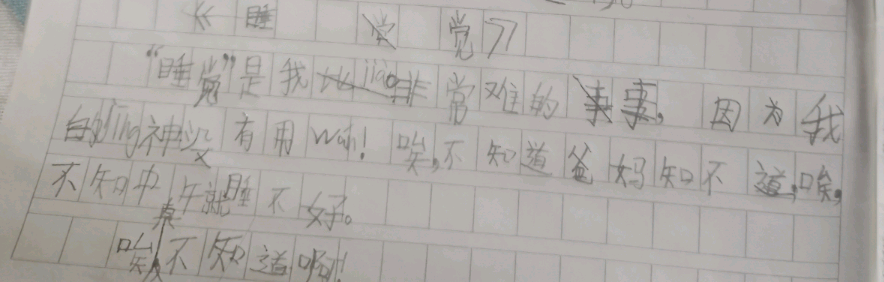 《睡觉》
“睡觉”是我非常难的事，因为我
白jīng神没有用wán！唉，不知道爸妈知不道，唉，
不知中午就睡不好。
唉，真不知道啊！